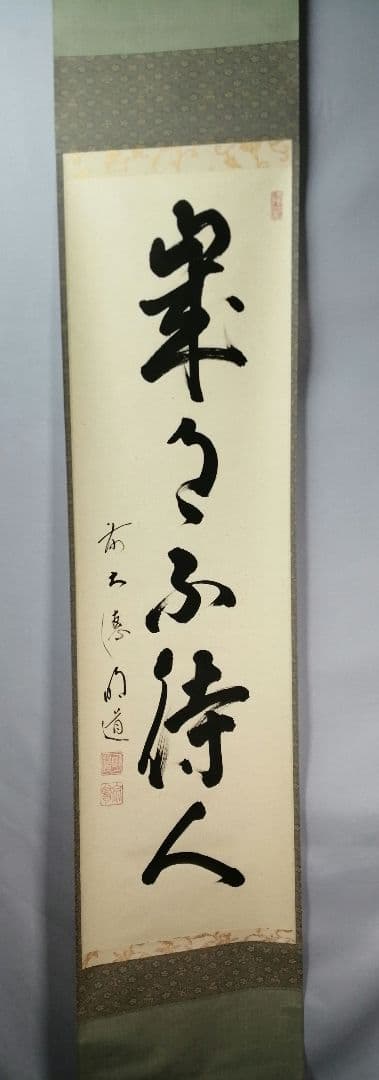 歳月不待人
前大徳明道